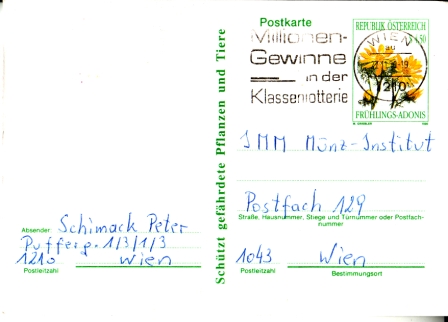 Postkarte
Millionen-
Gewinne
in der
Klassenlotterie
REPUBLIK ÖSTERREICH
WIEN
1210
FRÜHLINGS-ADONIS
Schützt gefährdete Pflanzen und Tiere
IMM Münz-Institut
Postfach 129
Straße, Hausnummer, Stiege und Türnummer oder Postfach-
nummer
1043 Wien
Postleitzahl Bestimmungsort
Absender: Schimack Peter
Pufferg. 1/3/1/3
1210 Wien
Postleitzahl